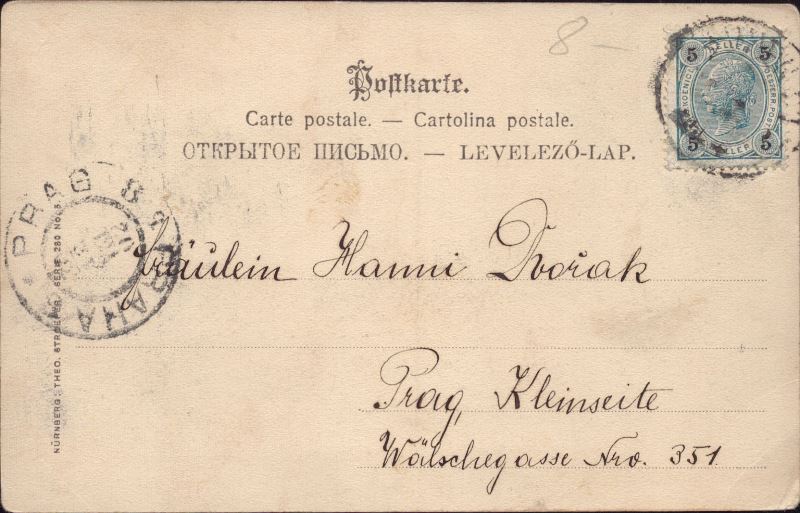 8-
Postkarte.
Carte postale. — Cartolina postale.
ОТКРЫТОЕ ПИСЬМО. — LEVELEZŐ-LAP.
5 HELLER 5
5 HELLER 5
PRAG
PRAHA
Fräulein Hanni Dvořak
Prag, Kleinseite
Wälschegasse Nro. 351.
NÜRNBERG: THEO. STROEFER, SERIE 280 No.